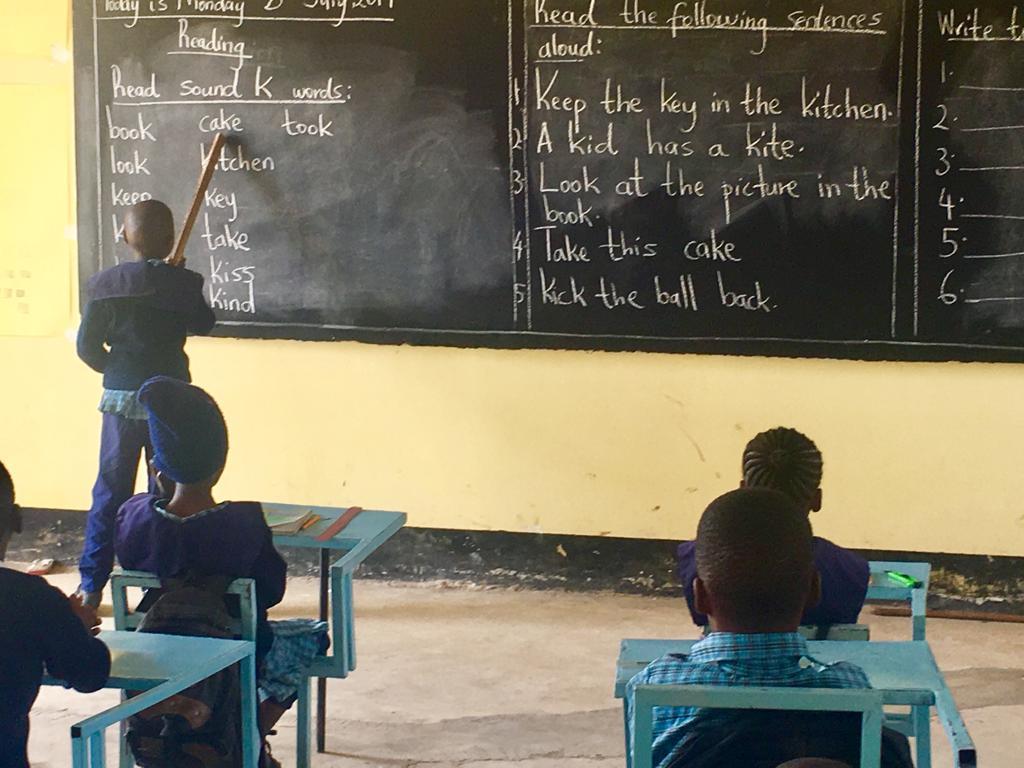 Today is Monday July
Reading
Read sound K words:
book cake took
look kitchen
keep key
take
kiss
kind
Read the following sentences
aloud:
1. Keep the key in the kitchen.
2 A kid has a kite.
3 Look at the picture in the
book.
4 Take this cake
5 Kick the ball back.
Write
1.
2.
3.
4.
5.
6.